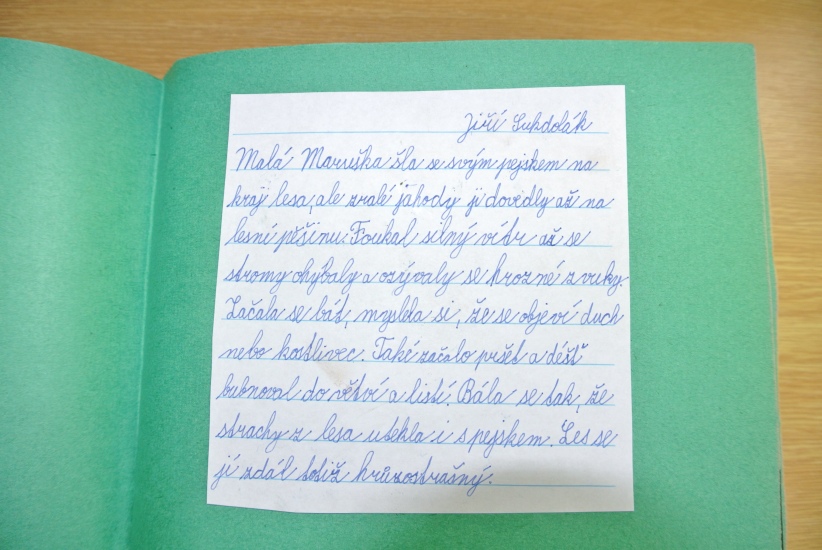 Jiří Sukdolák
Malá Maruška šla se svým pejskem na
kraj lesa, ale zralé jahody ji dovedly až na
lesní pěšinu. Foukal silný vítr až se
stromy ohýbaly a ozývaly se hrozné zvuky.
Začala se bát, myslela si, že se objeví duch
nebo kostlivec. Také začalo pršet a déšť
bubnoval do větví a listí. Bála se tak, že
strachy z lesa utekla i s pejskem. Les se
jí zdál totiž hrůzostrašný.